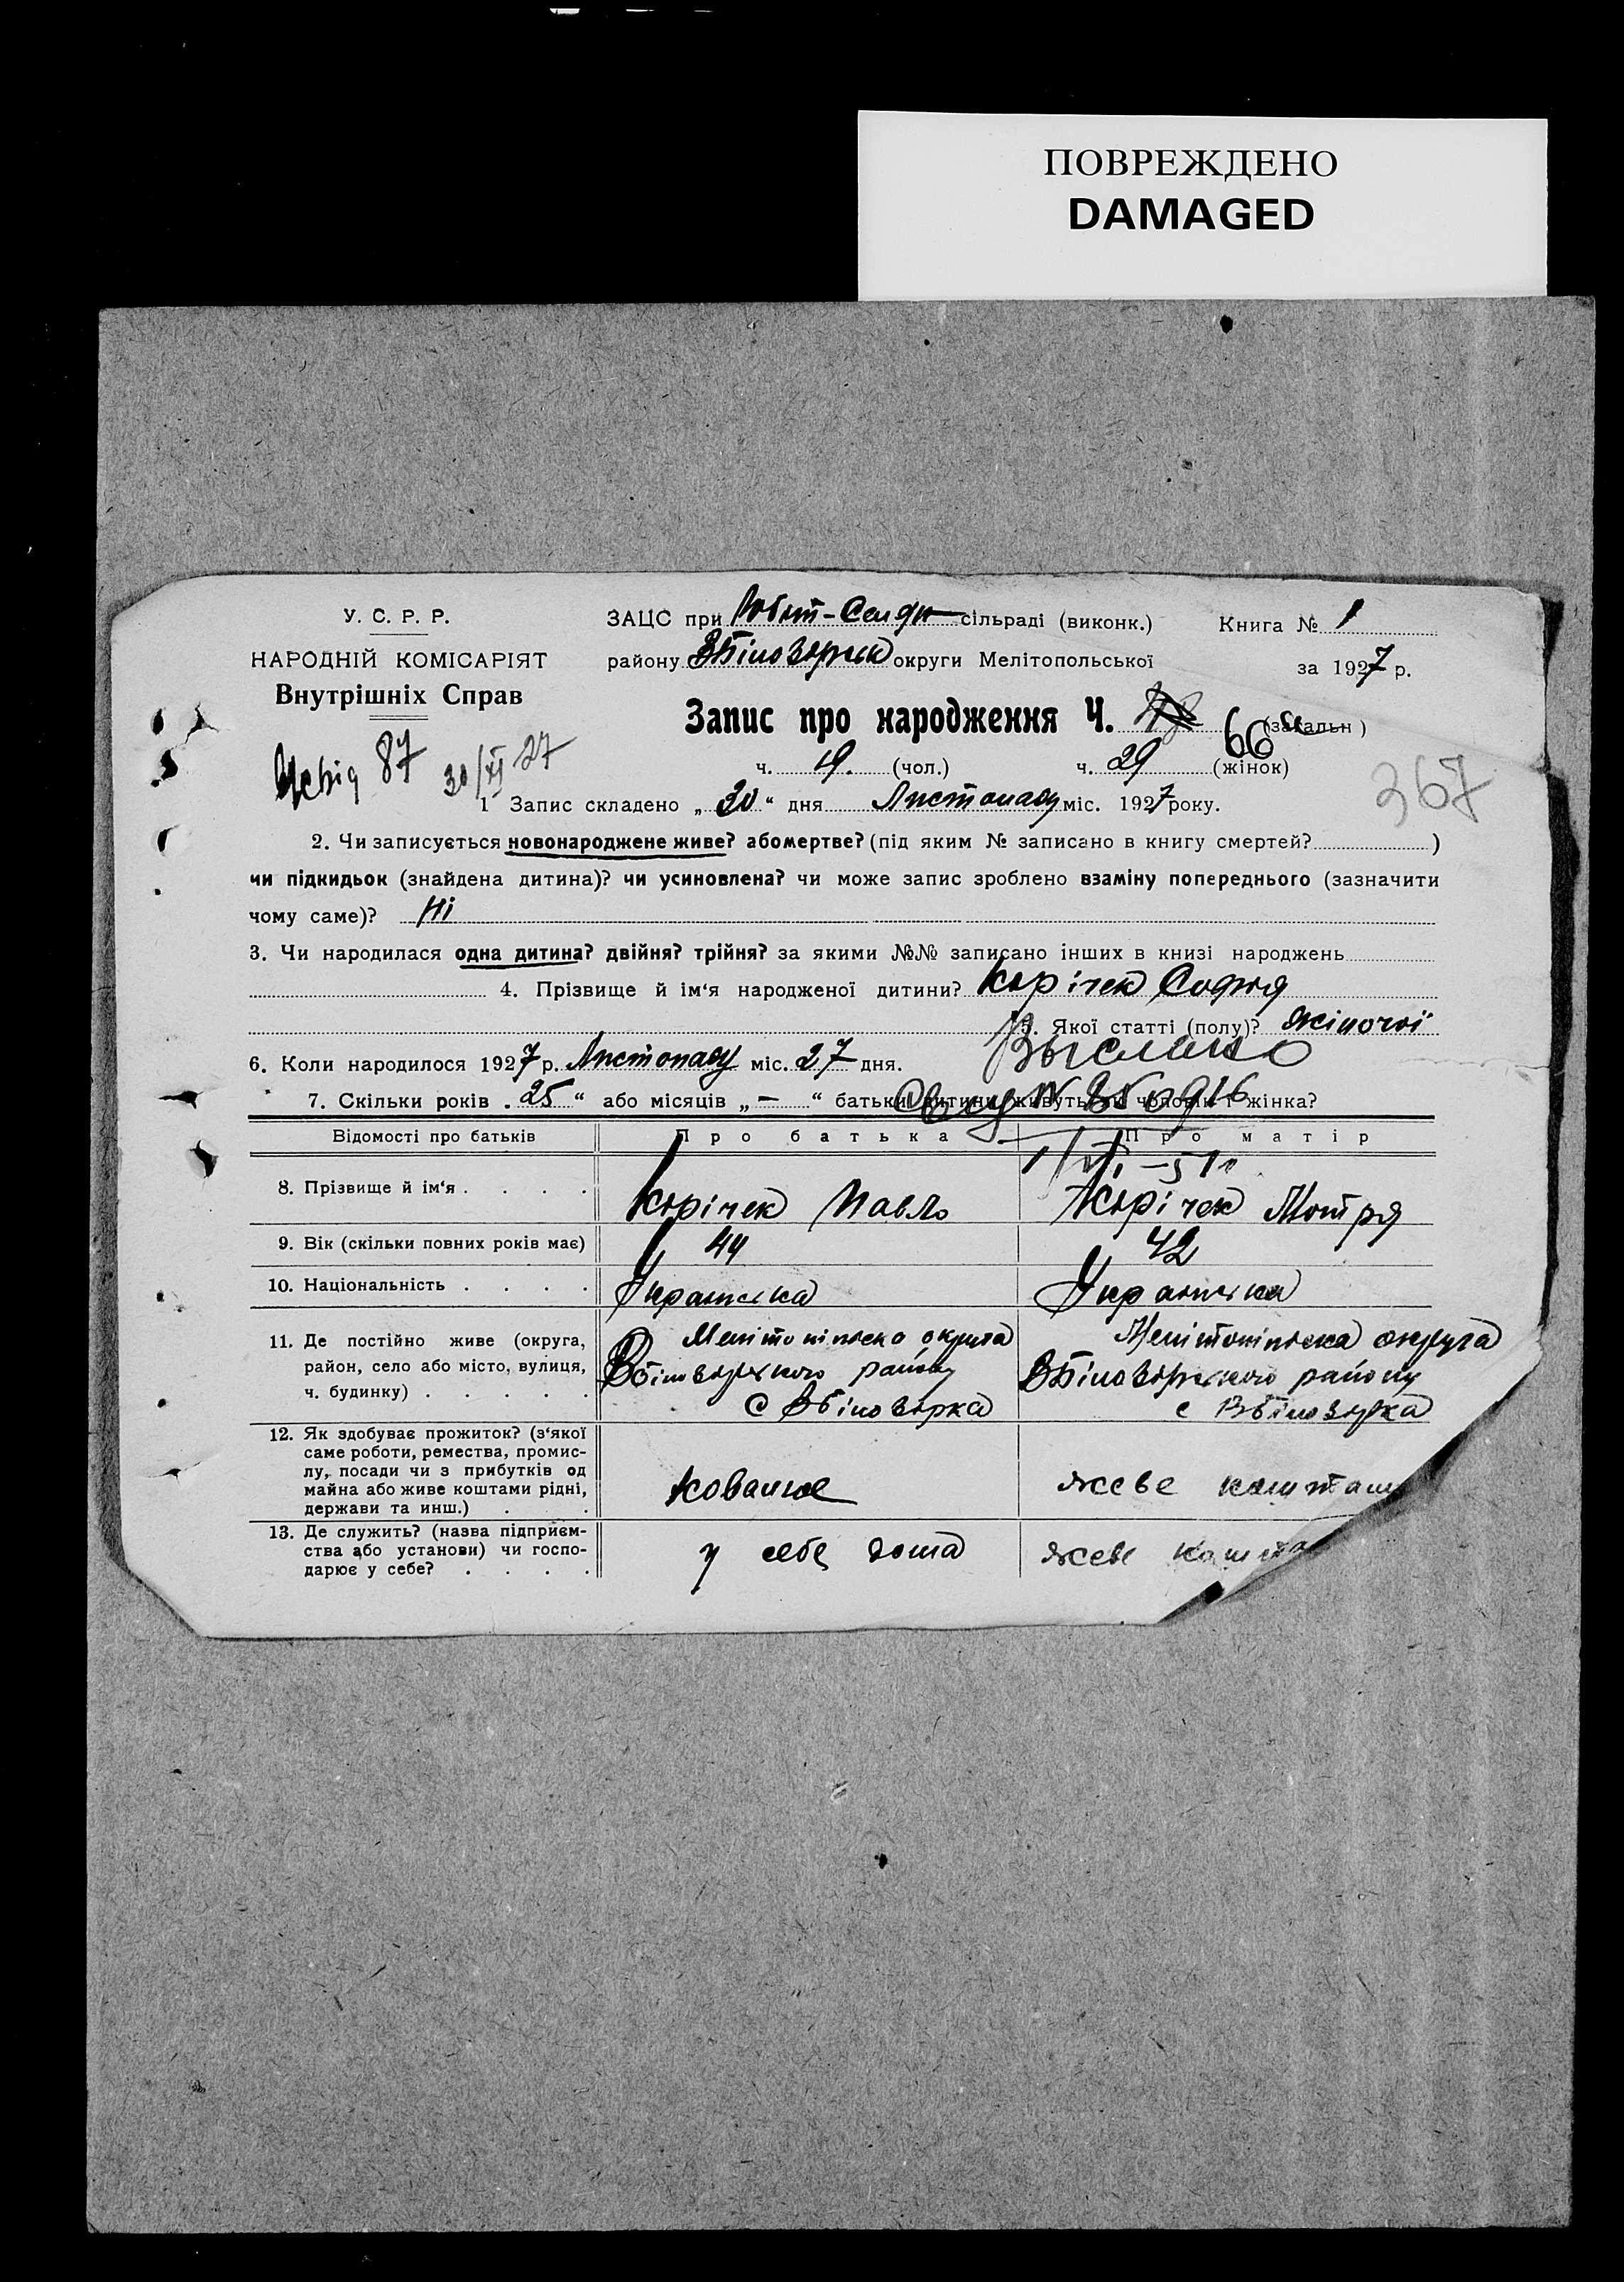 ПОВРЕЖДЕНО
DAMAGED
У. С. Р. Р.
НАРОДНІЙ КОМІСАРІЯТ
Внутрішніх Справ
ЗАЦС при сільраді (виконк.)
Книга № 1
району округи Мелітопольської
за 1927 р.
Запис про народження Ч. 66 (загальн)
87 30/XI 27
ч. (чол.) ч. 29 (жінок)
367
1 Запис складено „30“ дня Листопаду міс. 1927 року.
2. Чи записується новонароджене живе? або мертве? (під яким № записано в книгу смертей? )
чи підкидьок (знайдена дитина)? чи усиновлена? чи може запис зроблено взаміну попереднього (зазначити
чому саме)? Ні
3. Чи народилася одна дитина? двійня? трійня? за якими №№ записано інших в книзі народжень
4. Прізвище й ім‘я народженої дитини? Корічек Софія
5. Якої статті (полу)? жіночої
6. Коли народилося 1927 р. Листопаду міс. 27 дня.
Выслано
7. Скільки років „25“ або місяців „—“ батьки дитини живуть як чоловік і жінка?
Відомості про батьків
Про батька
Про матір
8. Прізвище й ім‘я . . . .
Корічек Павло
Корічек Мотря
9. Вік (скільки повних років має)
44
42
10. Національність . . . .
Українська
Українська
11. Де постійно живе (округа,
район, село або місто, вулиця,
ч. будинку) . . . . .
Мелітопільска округа
ВБілозірского району
с ВБілозірка
Мелітопільска округа
ВБілозірского району
с ВБілозірка
12. Як здобуває прожиток? (з‘якої
саме роботи, ремества, промис-
лу, посади чи з прибутків од
майна або живе коштами рідні,
держави та инш.) . .
живе кошт
13. Де служить? (назва підприєм-
ства або установи) чи госпо-
дарює у себе? . . . .
у себе дома
живе кошт